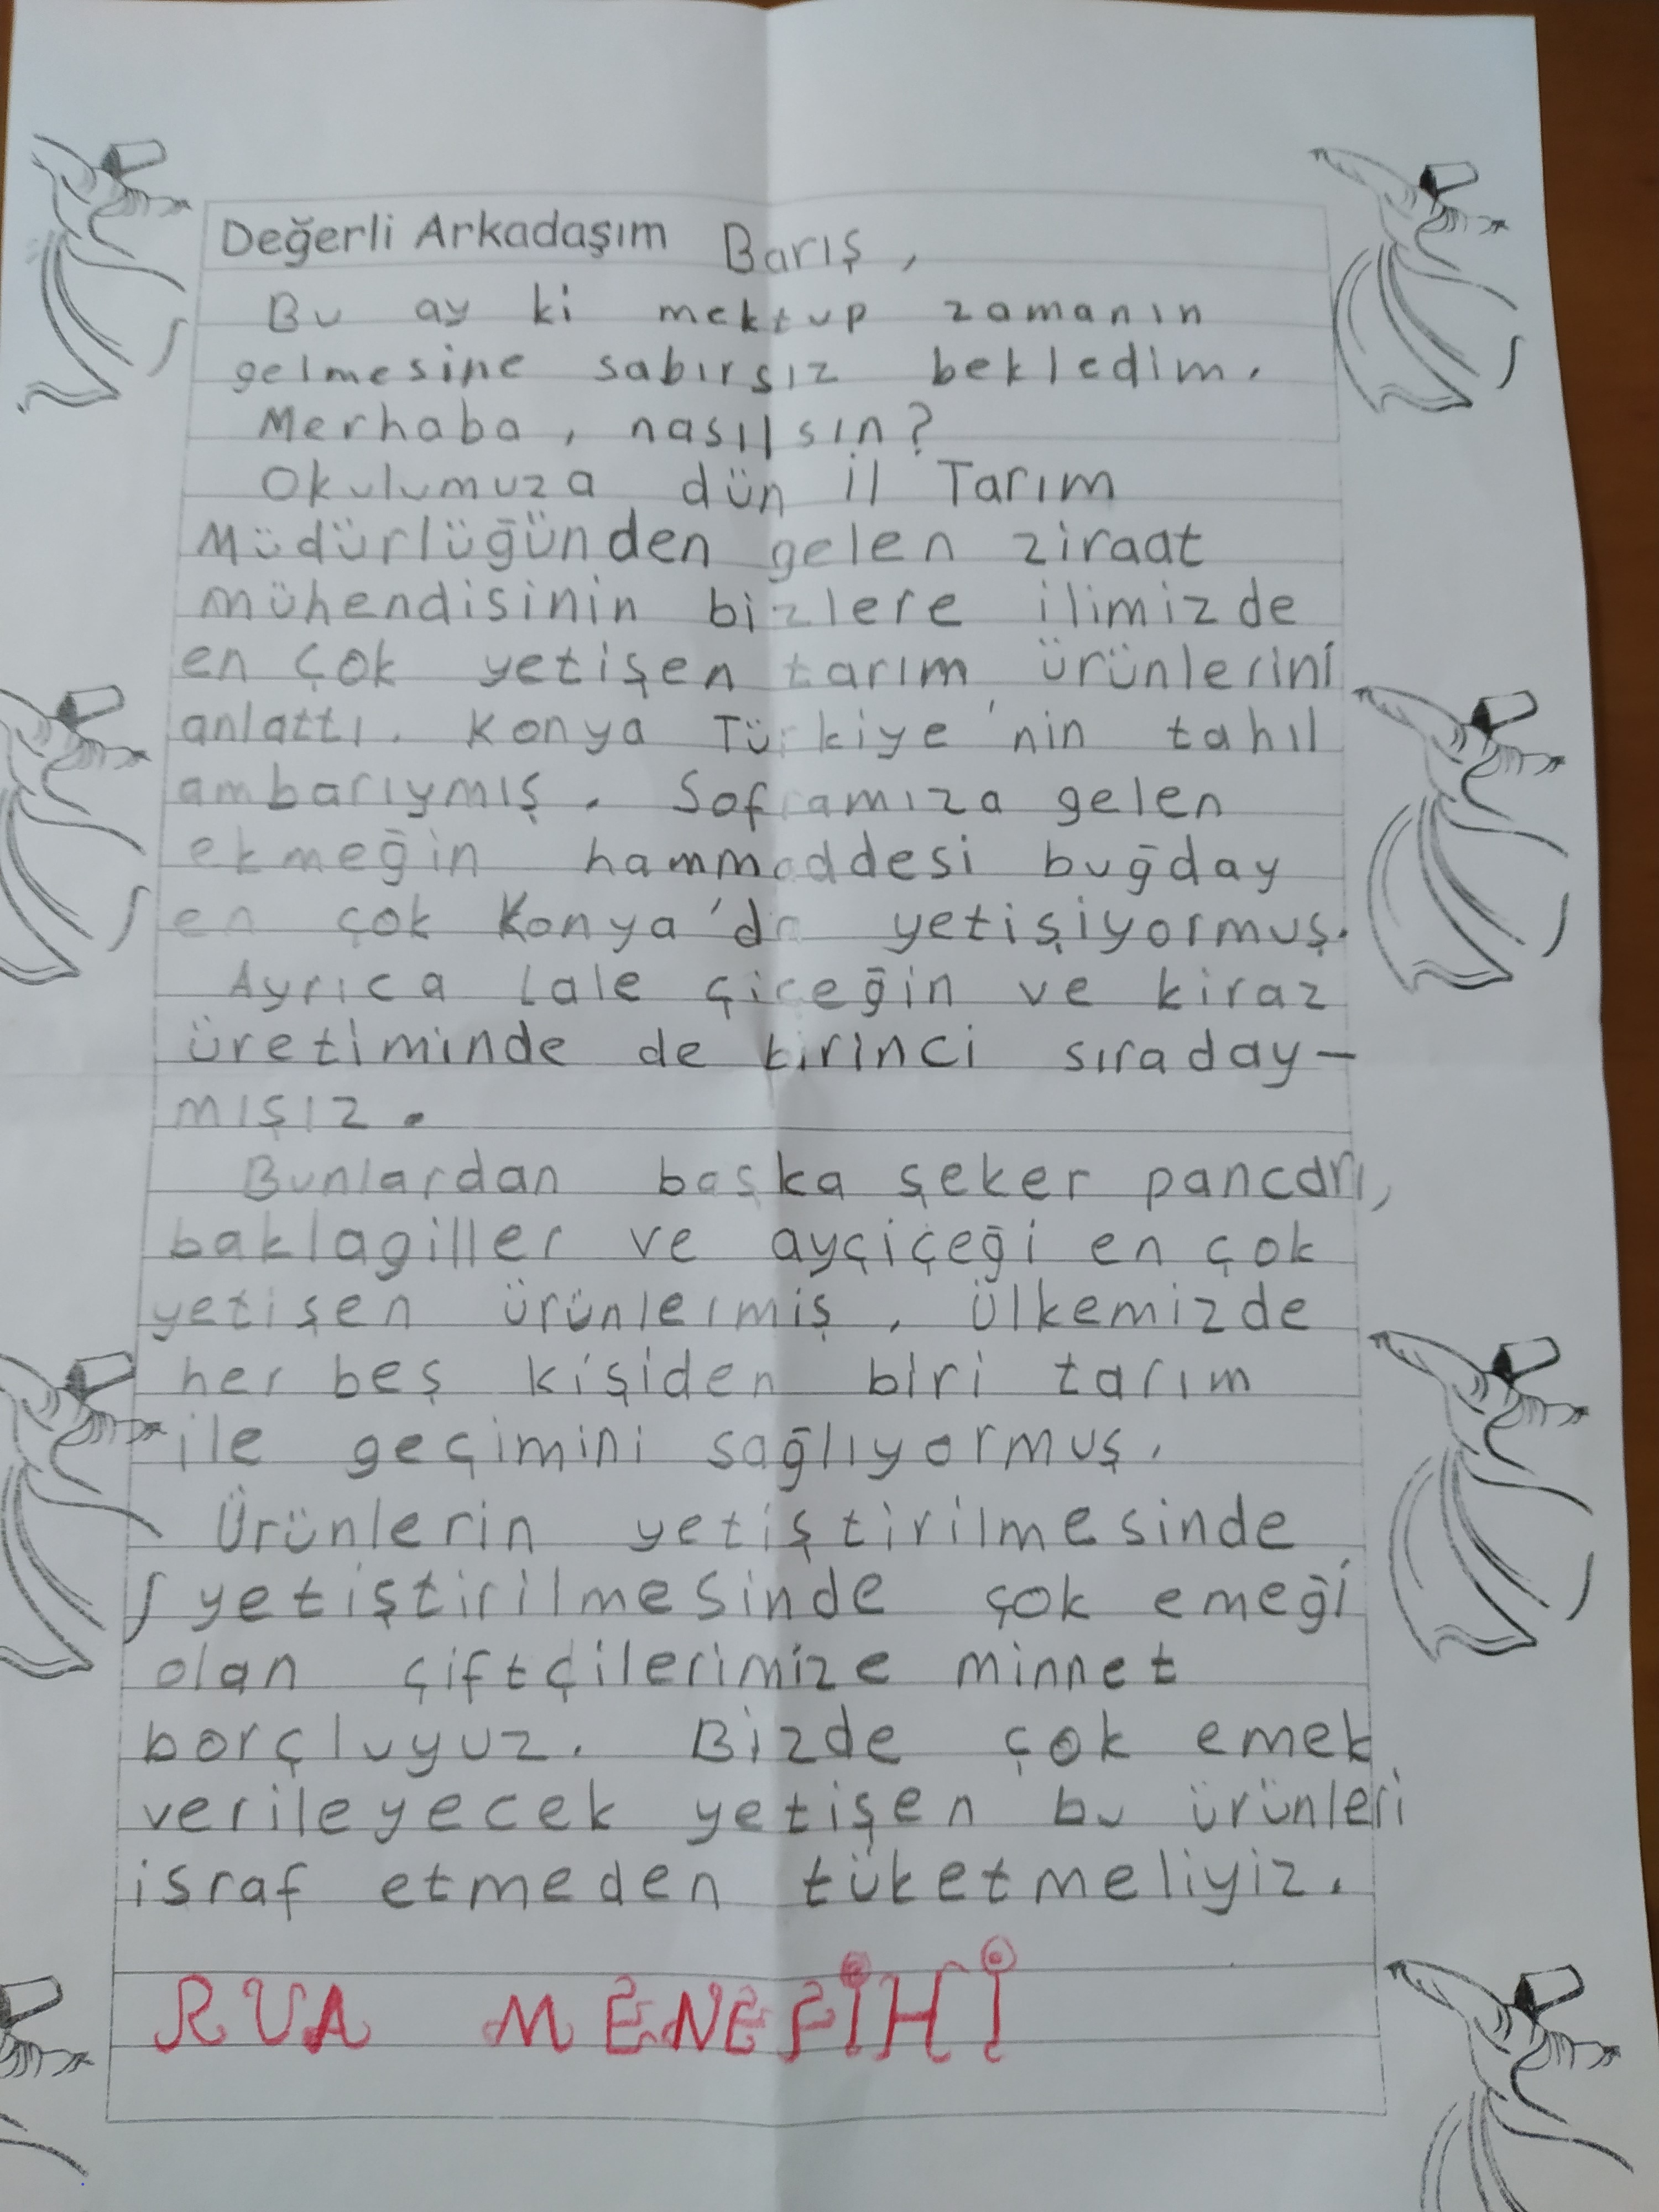 Değerli Arkadaşım Barış,
Bu ay ki mektup zamanın
gelmesine sabırsız bekledim.
Merhaba, nasılsın?
Okulumuza dün il Tarım
Müdürlüğünden gelen ziraat
mühendisinin bizlere ilimizde
en çok yetişen tarım ürünlerini
anlattı. Konya Türkiye'nin tahıl
ambarıymış. Soframıza gelen
ekmeğin hammaddesi buğday
en çok Konya'da yetişiyormuş.
Ayrıca lale çiçeğin ve kiraz
üretiminde de birinci sıraday-
mışız.
Bunlardan başka şeker pancarı,
baklagiller ve ayçiçeği en çok
yetişen ürünlermiş. Ülkemizde
her beş kişiden biri tarım
ile geçimini sağlıyormuş.
Ürünlerin yetiştirilmesinde
yetiştirilmesinde çok emeği
olan çiftçilerimize minnet
borçluyuz. Bizde çok emek
verileyecek yetişen bu ürünleri
israf etmeden tüketmeliyiz.
RUA MENEFİHİ